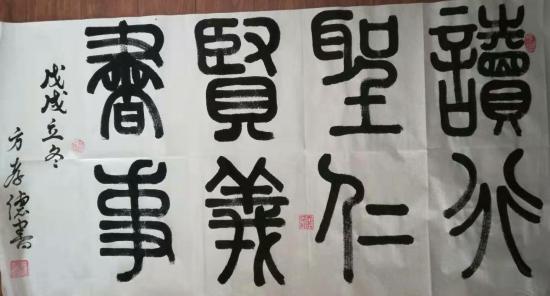 讀聖賢書
行仁義事
戊戌立冬
方孝德書